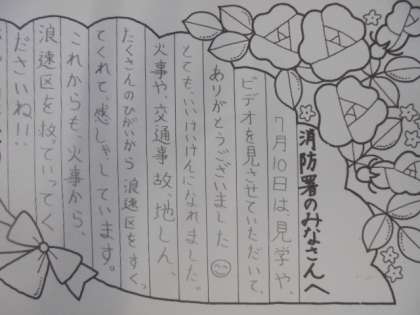 消防署のみなさんへ
7月10日は、見学や、
ビデオを見させていただいて、
ありがとうございました
とても、いいけいけんになれました。
火事や、交通事故、地しん、
たくさんのひがいから浪速区をすくっ
てくれて、感しゃしています。
これからも、火事から、
浪速区を救っていってく
ださいね!!